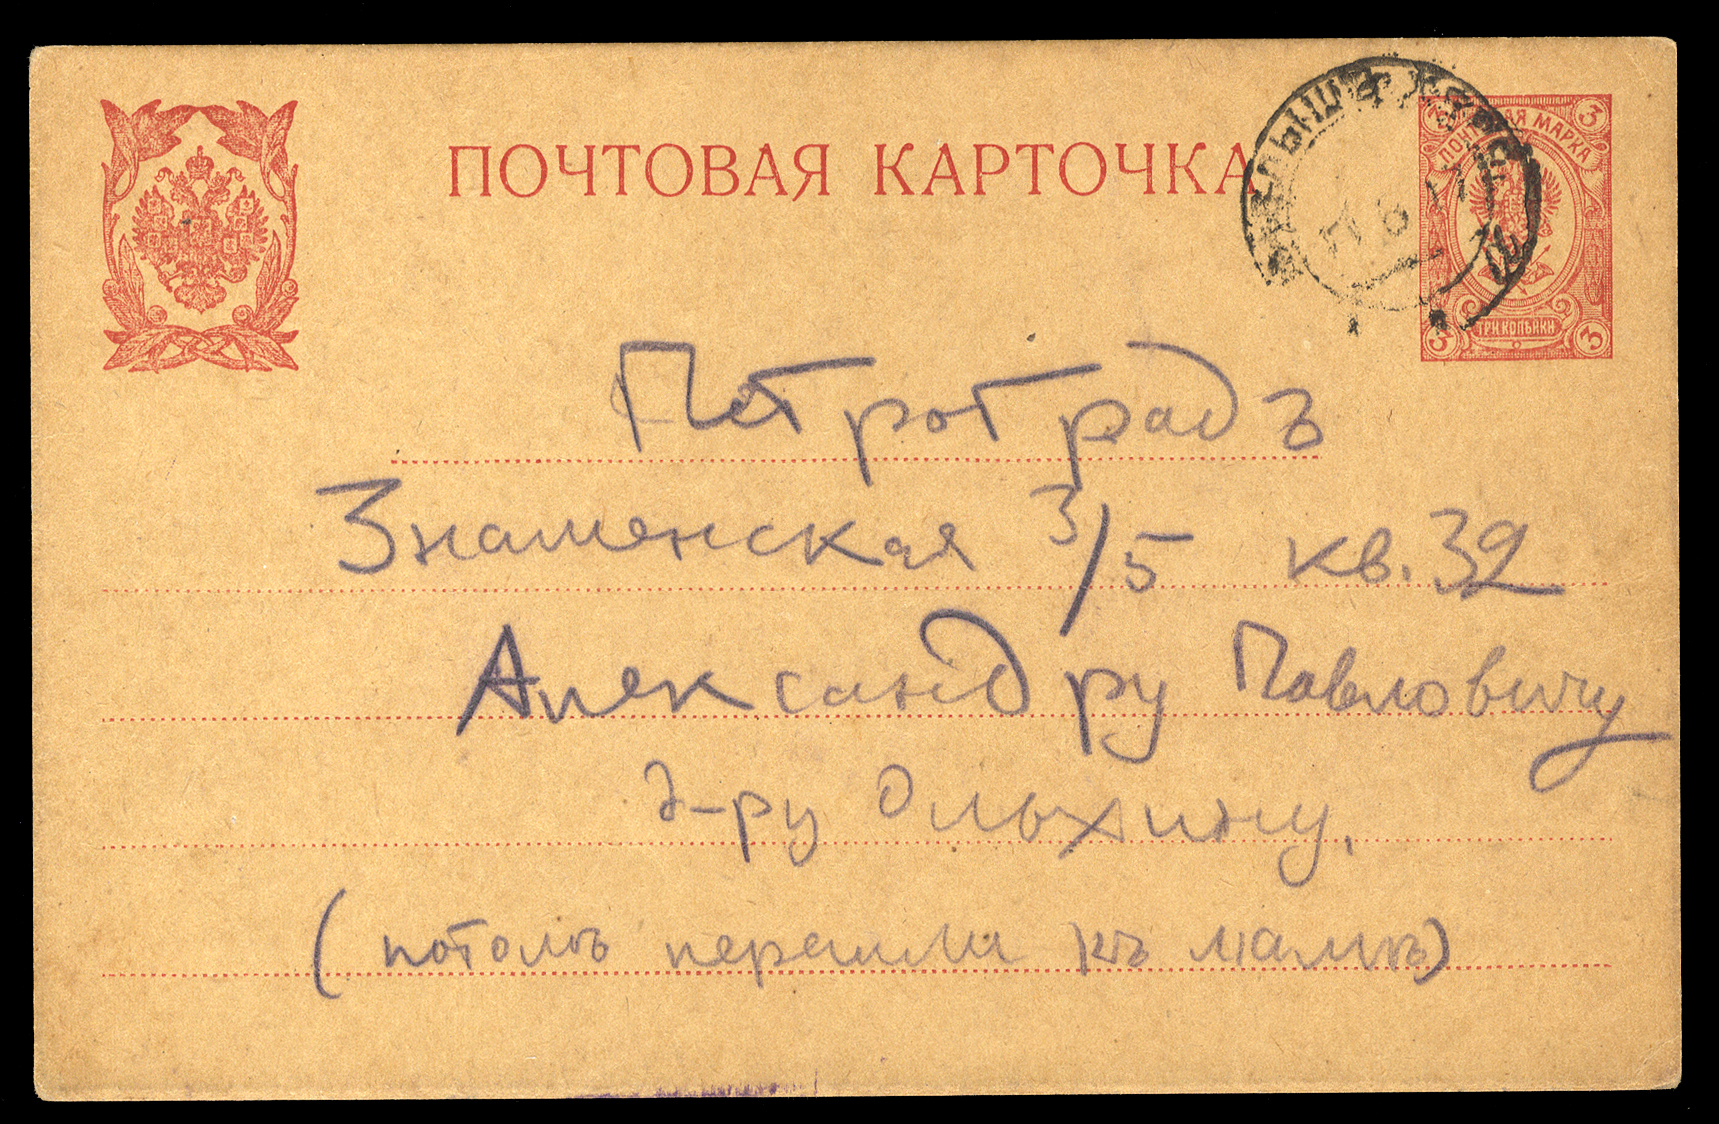 ПОЧТОВАЯ КАРТОЧКА
3 3
ПОЧТОВАЯ МАРКА
7 6 17
ТРИ КОПѢЙКИ
3 3
Петроградъ
Знаменская 3/5 кв. 32
Александру Павловичу
д-ру Ольхину,
(потомъ перешли къ мамѣ)